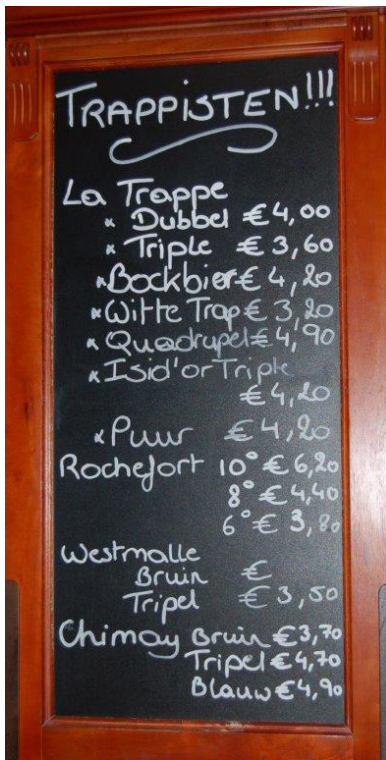 TRAPPISTEN!!!
La Trappe
× Dubbel € 4,00
× Triple € 3,60
× Bockbier € 4,20
× Witte Trap € 3,20
× Quadrupel € 4,90
× Isid'or Triple
€ 4,20
× Puur € 4,20
Rochefort 10° € 6,20
8° € 4,40
6° € 3,80
Westmalle
Bruin €
Tripel € 3,50
Chimay Bruin € 3,70
Tripel € 4,70
Blauw € 4,90